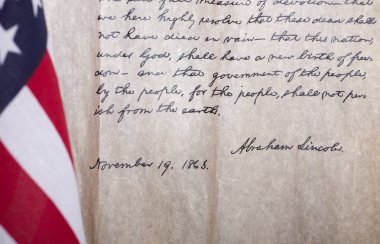 measure of devotion—that
we here highly resolve that these dead shall
not have died in vain—that this nation,
under God, shall have a new birth of free-
dom—and that government of the people,
by the people, for the people, shall not per-
ish from the earth.
Abraham Lincoln.
November 19. 1863.